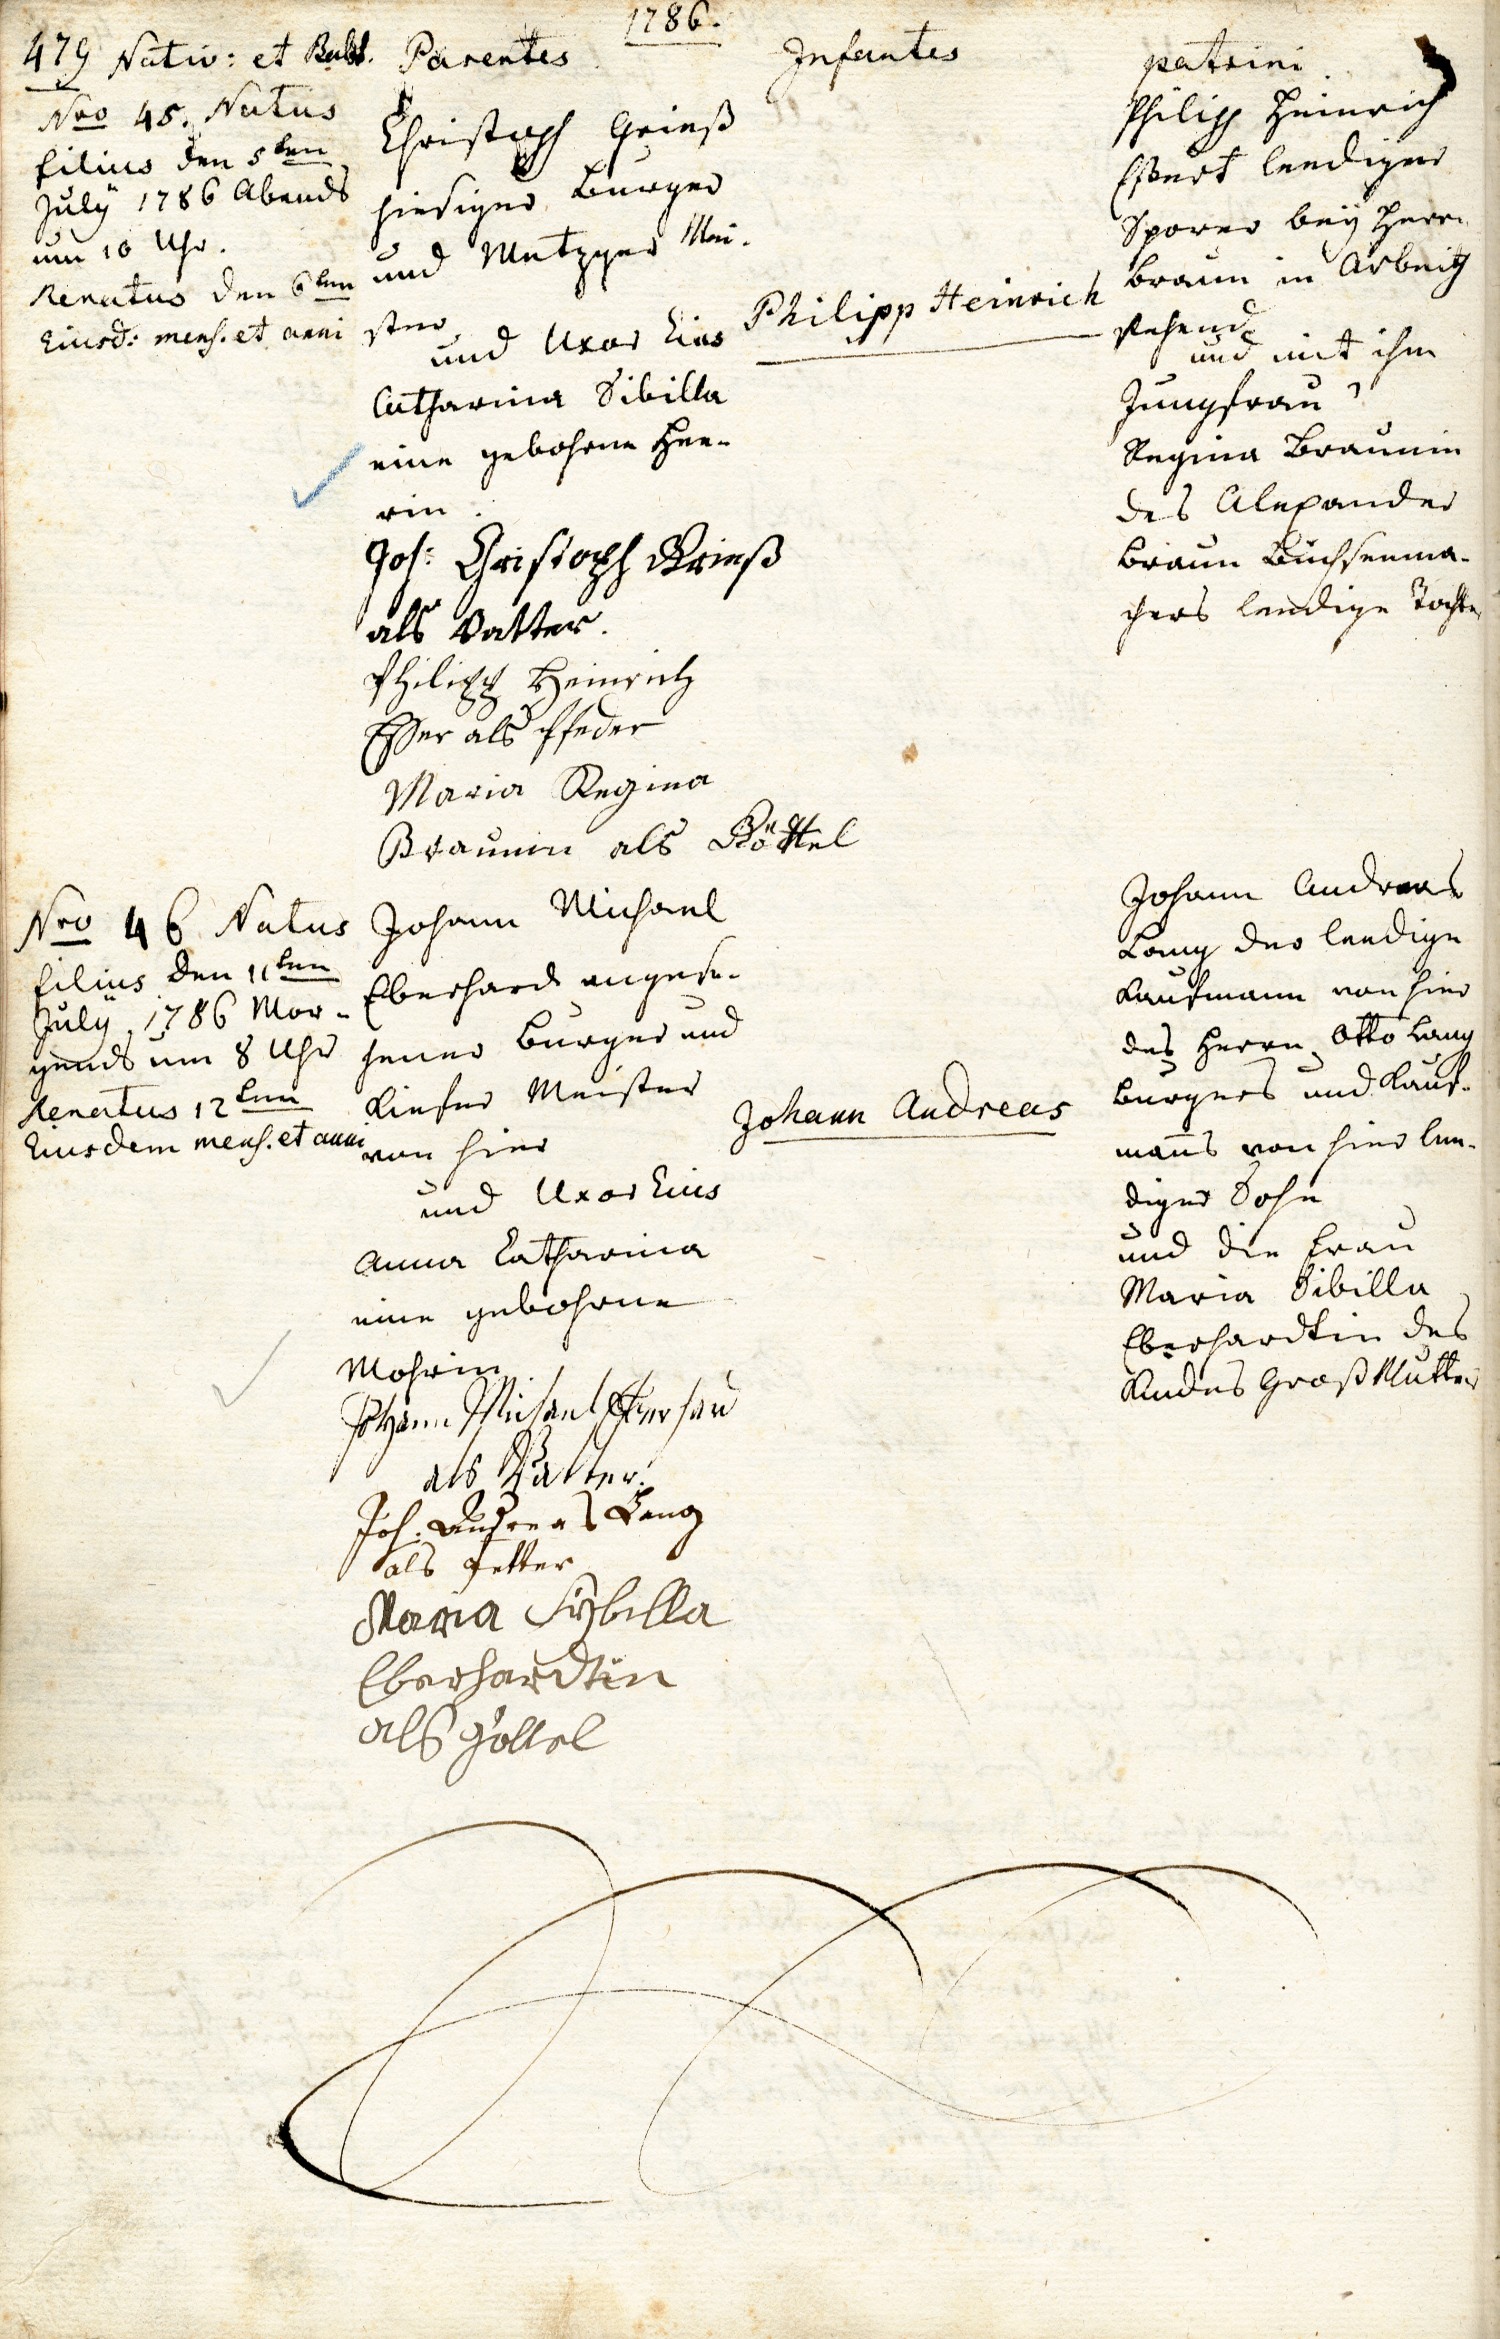 1786.
479 Nativ: et Babt. Parentes Infantes patrini
Nro 45. Natus
filius den 5ten
July 1786 Abends
um 10 Uhr.
Renatus den 6ten
Eiusd: mens. et anni
Christoph Grieß
hiesiger Burger
und Metzger Mei-
ster
und Uxor Eius
Catharina Sibilla
eine gebohrne Hee-
rin.
Joh: Christoph Grieß
als Vatter.
Philipp Heinrich
Esser als Pfeder
Maria Regina
Braunin als Göttel
Philipp Heinrich
Philipp Heinrich
Essert leediger
Sporer bey Herrn
Braun in Arbeit
stehend
und mit ihm
Jungfrau
Regina Braunin
des Alexander
Braun Büchsenma-
chers leedige Tochter
Nro 46 Natus
filius den 11ten
July 1786 Mor-
gends um 8 Uhr
Renatus 12ten
Eiusdem mens. et anni
Johann Michael
Eberhard angese-
hener Burger und
Kiefer Meister
von hier
und Uxor Eius
Anna Catharina
eine gebohrne
Mohrin
Johann Michael Eberhard
als Vatter.
Joh: Andreas Lang
als Petter
Maria Sybilla
Eberhardtin
als Göttel
Johann Andreas
Johann Andreas
Lang der leedige
Kaufmann von hier
des Herrn Otto Lang
Burgers und Kauf-
manns von hier lee-
diger Sohn
und die Frau
Maria Sibilla
Eberhardtin des
Kindes Groß Mutter